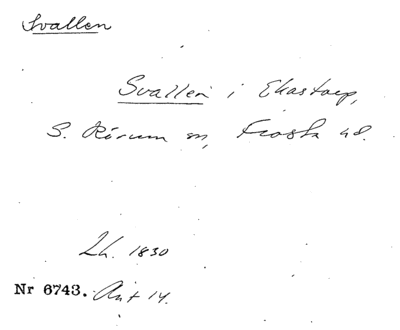 Svallen
Svallen i Ekastorp,
S. Rörum sn, Frosta hd.
Lh. 1830
Nr 6743. Ant 14.